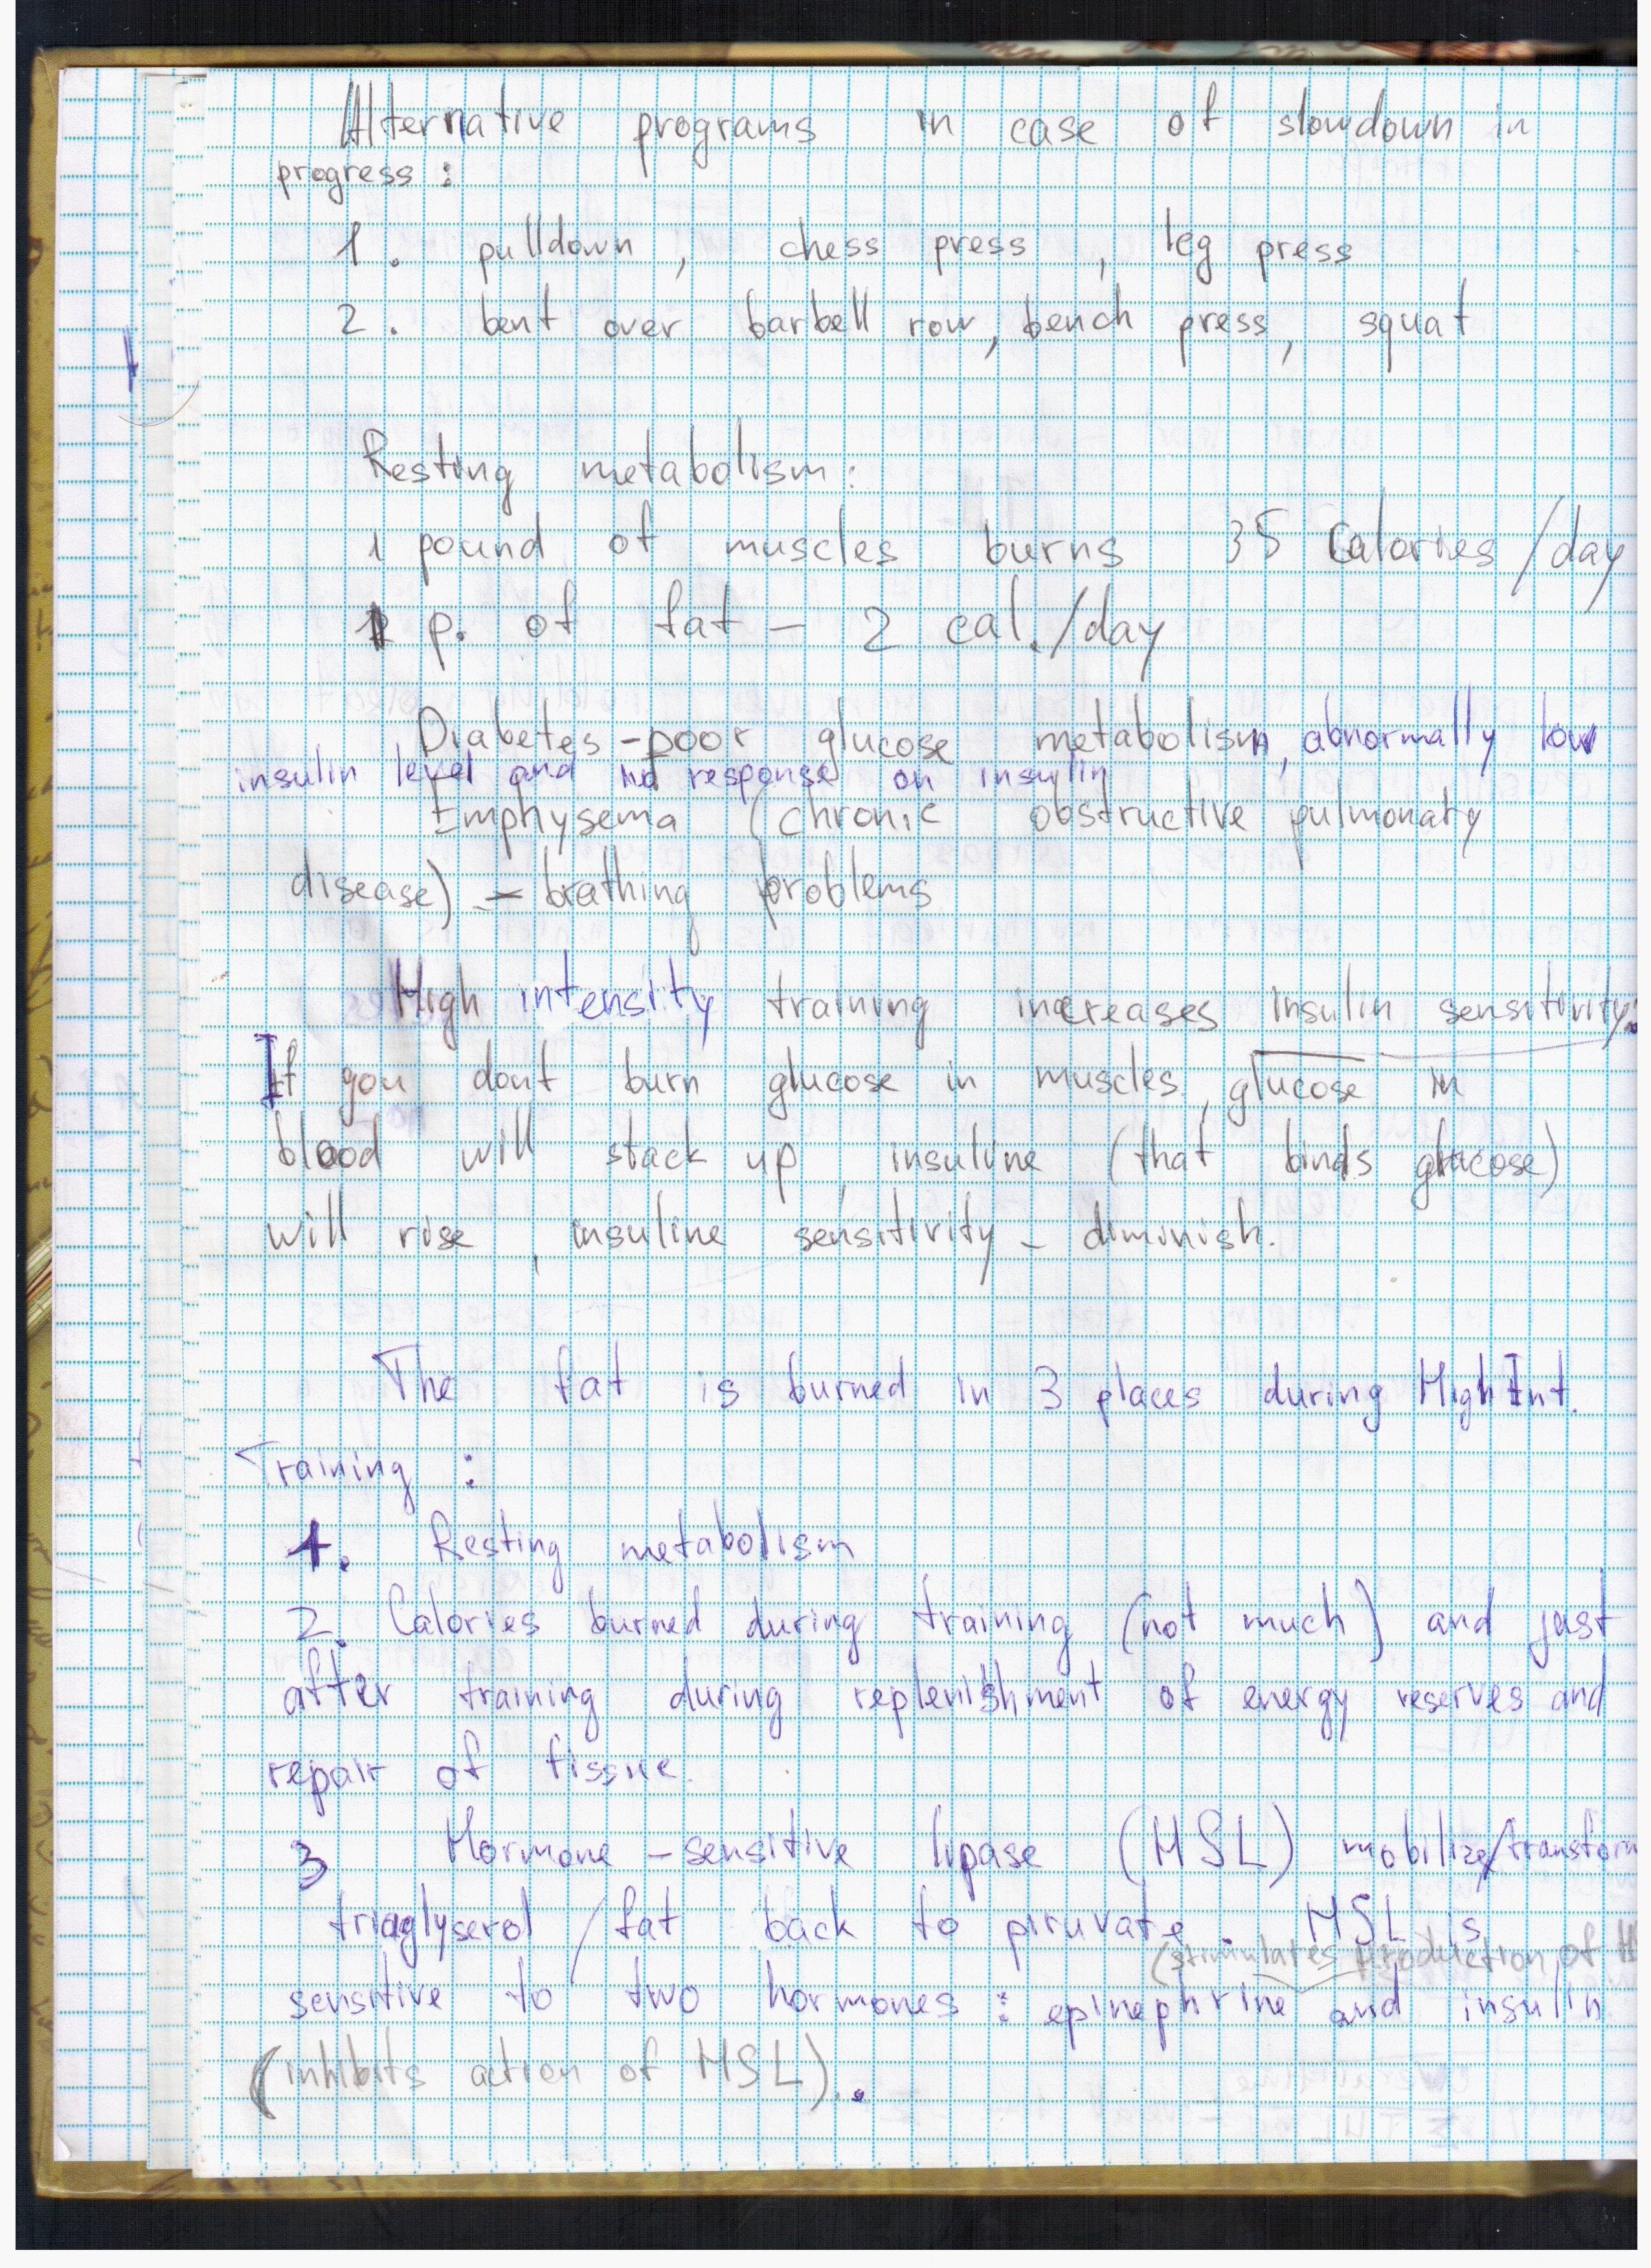 Alternative programs in case of slowdown in
progress :
1. pulldown , chess press , leg press
2. bent over barbell row, bench press, squat
Resting metabolism:
1 pound of muscles burns 35 Calories /day
1 p. of fat – 2 cal./day
Diabetes - poor glucose metabolism, abnormally low
insulin level and no response on insulin
Emphysema (chronic obstructive pulmonary
disease) – brathing problems
High intensity training increases insulin sensitivity.
If you dont burn glucose in muscles, glucose in
blood will stack up, insuline (that binds glucose)
will rise, insuline sensitivity – diminish.
The fat is burned in 3 places during High Int.
Training :
1. Resting metabolism
2. Calories burned during training (not much) and just
after training during replenishment of energy reserves and
repair of tissue.
3 Hormone-sensitive lipase (HSL) mobilize/transform
triaglyserol /fat back to piruvate. HSL is
(stimulates production of H
sensitive to two hormones : epinephrine and insulin
(inhibits action of HSL).